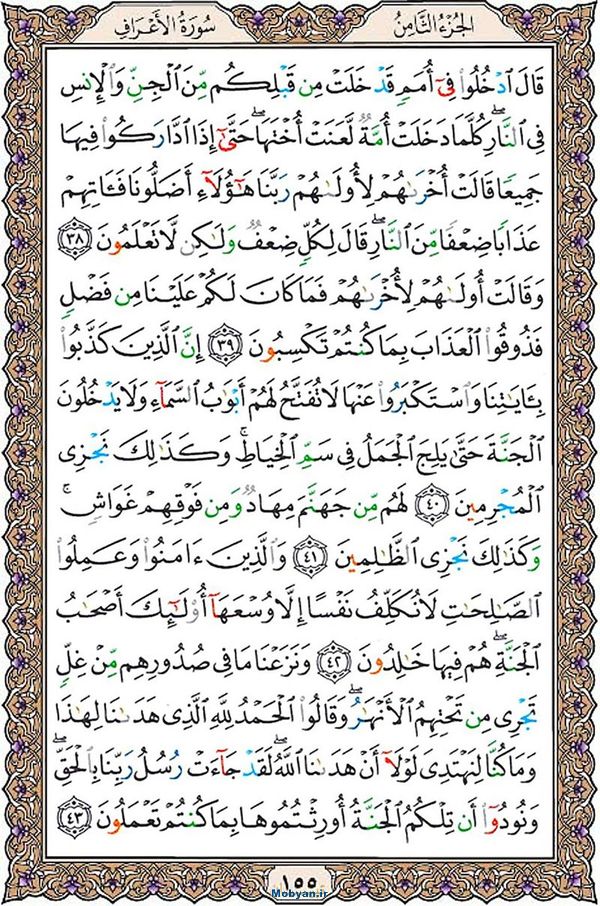 الجزء الثامن
سورة الأعراف
قَالَ ٱدْخُلُوا۟ فِىٓ أُمَمٍ قَدْ خَلَتْ مِن قَبْلِكُم مِّنَ ٱلْجِنِّ وَٱلْإِنسِ
فِى ٱلنَّارِ ۖ كُلَّمَا دَخَلَتْ أُمَّةٌ لَّعَنَتْ أُخْتَهَا ۖ حَتَّىٰٓ إِذَا ٱدَّارَكُوا۟ فِيهَا
جَمِيعًا قَالَتْ أُخْرَىٰهُمْ لِأُولَىٰهُمْ رَبَّنَا هَـٰٓؤُلَآءِ أَضَلُّونَا فَـَٔاتِهِمْ
عَذَابًا ضِعْفًا مِّنَ ٱلنَّارِ ۖ قَالَ لِكُلٍّ ضِعْفٌ وَلَـٰكِن لَّا تَعْلَمُونَ ٣٨
وَقَالَتْ أُولَىٰهُمْ لِأُخْرَىٰهُمْ فَمَا كَانَ لَكُمْ عَلَيْنَا مِن فَضْلٍ
فَذُوقُوا۟ ٱلْعَذَابَ بِمَا كُنتُمْ تَكْسِبُونَ ٣٩ إِنَّ ٱلَّذِينَ كَذَّبُوا۟
بِـَٔايَـٰتِنَا وَٱسْتَكْبَرُوا۟ عَنْهَا لَا تُفَتَّحُ لَهُمْ أَبْوَٰبُ ٱلسَّمَآءِ وَلَا يَدْخُلُونَ
ٱلْجَنَّةَ حَتَّىٰ يَلِجَ ٱلْجَمَلُ فِى سَمِّ ٱلْخِيَاطِ ۚ وَكَذَٰلِكَ نَجْزِى
ٱلْمُجْرِمِينَ ٤٠ لَهُم مِّن جَهَنَّمَ مِهَادٌ وَمِن فَوْقِهِمْ غَوَاشٍ ۚ
وَكَذَٰلِكَ نَجْزِى ٱلظَّـٰلِمِينَ ٤١ وَٱلَّذِينَ ءَامَنُوا۟ وَعَمِلُوا۟
ٱلصَّـٰلِحَـٰتِ لَا نُكَلِّفُ نَفْسًا إِلَّا وُسْعَهَآ أُو۟لَـٰٓئِكَ أَصْحَـٰبُ
ٱلْجَنَّةِ ۖ هُمْ فِيهَا خَـٰلِدُونَ ٤٢ وَنَزَعْنَا مَا فِى صُدُورِهِم مِّنْ غِلٍّ
تَجْرِى مِن تَحْتِهِمُ ٱلْأَنْهَـٰرُ ۖ وَقَالُوا۟ ٱلْحَمْدُ لِلَّهِ ٱلَّذِى هَدَىٰنَا لِهَـٰذَا
وَمَا كُنَّا لِنَهْتَدِىَ لَوْلَآ أَنْ هَدَىٰنَا ٱللَّهُ ۖ لَقَدْ جَآءَتْ رُسُلُ رَبِّنَا بِٱلْحَقِّ ۖ
وَنُودُوٓا۟ أَن تِلْكُمُ ٱلْجَنَّةُ أُورِثْتُمُوهَا بِمَا كُنتُمْ تَعْمَلُونَ ٤٣
١٥٥
Mobyan.ir